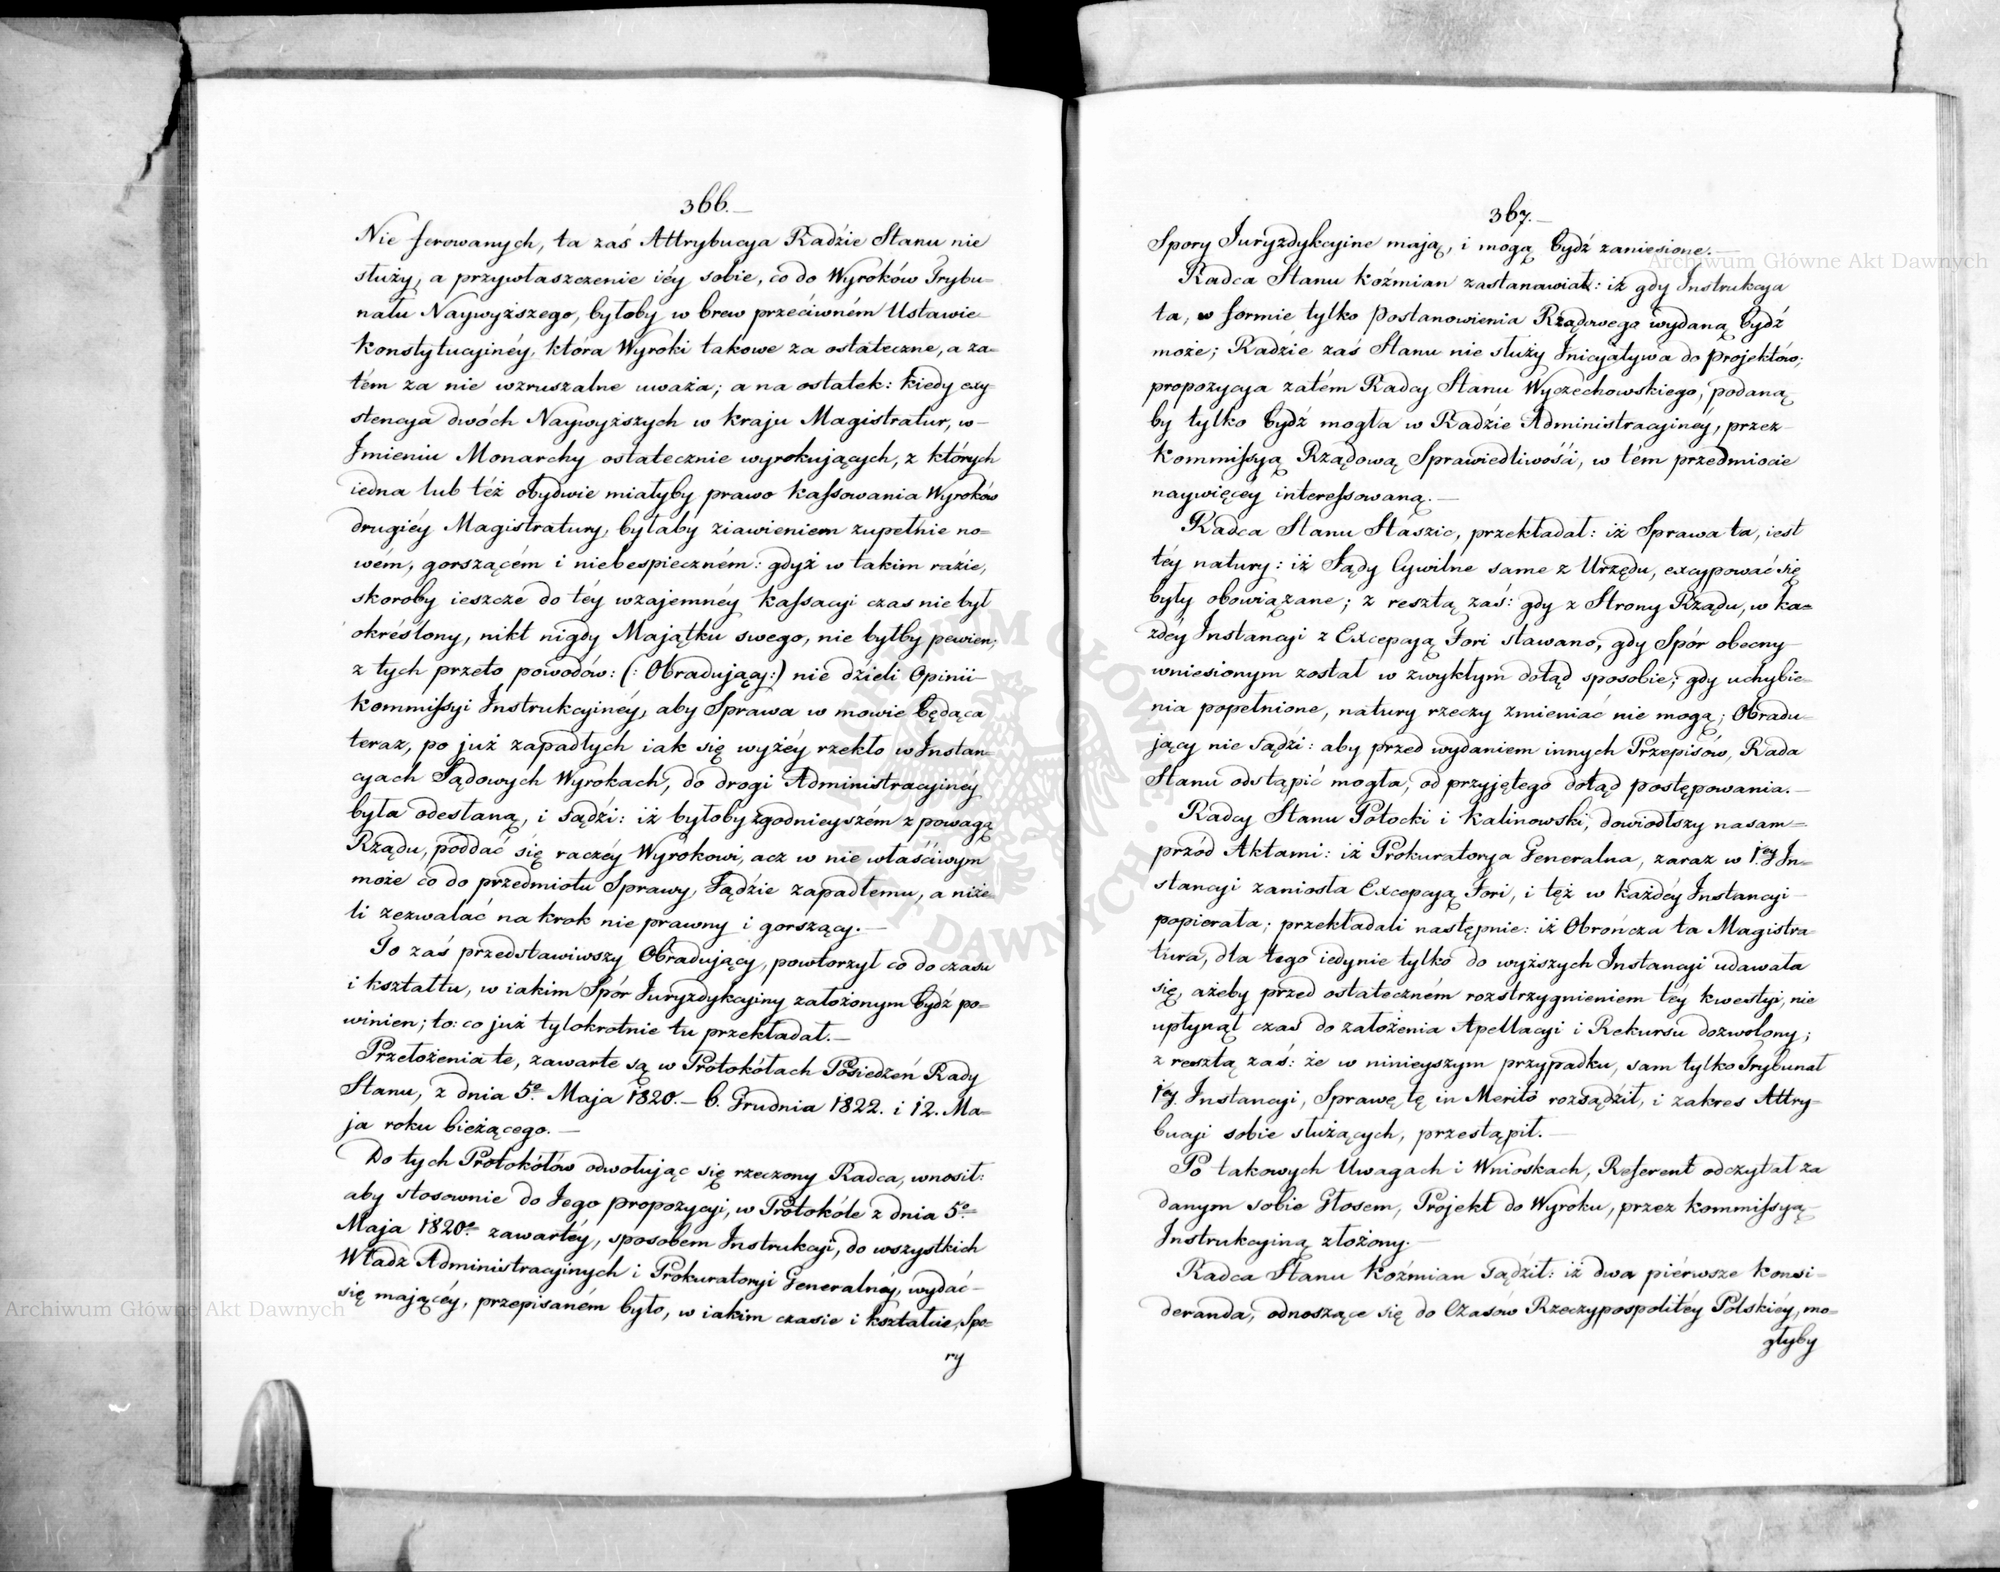 366.
Nie ferowanych, ta zaś Attrybucya Radźie Stanu nie
służy, a przywłaszczenie iéy sobie, co do Wyroków Trybu=
nału Naywyższego, byłoby w brew przeciwném Ustawie
Konstytucyinéy, która Wyroki takowe za ostateczne, a za=
tém za nie wzruszalne uważa; a na ostatek: kiedy exy=
stencya dwóch Naywyższych w kraju Magistratur, w
Imieniu Monarchy ostatecznie wyrokujących, z których
iedna lub też obydwie miałyby prawo kassowania Wyroków
drugiéy Magistratury, byłaby ziawieniem zupełnie no=
wém, gorszącém i niebespieczném: gdyż w takim raźie,
skoroby ieszcze do téy wzajemnéy kassacyi czas nie był
okréślony, nikt nigdy Majątku swego, nie byłby pewien;
z tych przeto powodów: (: Obradujący:) nie dzieli Opinii
Kommissyi Instrukcyinéy, aby Sprawa w mowie będąca
teraz, po już zapadłych iak się wyżéy rzekło w Instan=
cyach Sądowych Wyrokach, do drogi Administracyinéy
była odesłaną, i sądźi: iż byłoby zgodnieyszém z powagą
Rządu, poddać się raczéy Wyrokowi, acz w nie właściwym
może co do przedmiotu Sprawy, Sądzie zapadłemu, a niże=
li zezwalać na krok nie prawny i gorszący.
To zaś przedstawiwszy Obradujący, powtorzył co do czasu
i kształtu, w iakim Spór Juryzdykcyiny założonym bydź po=
winien; to: co już tylokrotnie tu przekładał.
Przełożenia te, zawarte są w Protokółach Posiedzeń Rady
Stanu, z dnia 5º Maja 1820. 6. Grudnia 1822. i 12. Ma=
ja roku bieżącego.
Do tych Protokółów odwołując się rzeczony Radca, wnosił:
aby stosownie do Jego propozycyi, w Protokóle z dnia 5º
Maja 1820º zawartéy, sposobem Instrukcyi, do wszystkich
Władz Administracyinych i Prokuratoryi Generalnéy, wydać
się mającéy, przepisaném było, w iakim czasie i kształcie, Spo=
ry
367.
Spory Juryzdykcyine mają, i mogą bydź zaniesione.
Radca Stanu Koźmian zastanawiał: iż gdy Instrukcya
ta, w formie tylko Postanowienia Rządowego wydaną bydź
może; Radźie zaś Stanu nie służy Inicyatywa do projektów;
propozycya zatém Radcy Stanu Wyczechowskiego, podaną
by tylko bydź mogła w Radźie Administracyinéy, przez
Kommissyą Rządową Sprawiedliwości, w tém przedmiocie
naywięcéy interessowaną.
Radca Stanu Staszic, przekładał: iż Sprawa ta, iest
téy natury: iż Sądy Cywilne same z Urzędu, excypować się
były obowiązane; z resztą zaś: gdy z Strony Rządu, w ka=
żdéy Instancyi z Excepcyą Fori stawano, gdy Spór obecny
wniesionym został w zwykłym dotąd sposobie; gdy uchybie=
nia popełnione, natury rzeczy zmieniać nie mogą; Obradu=
jący nie sądźi: aby przed wydaniem innych Przepisów, Rada
Stanu odstąpić mogła, od przyjętego dotąd postępowania.
Radcy Stanu Potocki i Kalinowski, dowiodłszy nasam=
przód Aktami: iż Prokuratorya Generalna, zaraz w 1éy In=
stancyi zaniosła Excepcyą Fori, i też w każdéy Instancyi
popierała; przekładali następnie: iż Obrończa ta Magistra=
tura, dla tego iedynie tylko do wyższych Instancyi udawała
się, ażeby przed ostateczném rozstrzygnieniem téy kwestyi, nie
upłynął czas do założenia Apellacyi i Rekursu dozwolony;
z resztą zaś: że w ninieyszym przypadku, sam tylko Trybunał
1éy Instancyi, Sprawę tę in Merito rozsądził, i zakres Attry=
bucyi sobie służących, przestąpił.
Po takowych Uwagach i Wnioskach, Referent odczytał za
danym sobie Głosem, Projekt do Wyroku, przez Kommissyą
Instrukcyiną złożony.
Radca Stanu Koźmian sądźił: iż dwa piérwsze konsi=
deranda, odnoszące się do Czasów Rzeczypospolitéy Polskiéy, mo=
głyby
Archiwum Główne Akt Dawnych
Archiwum Główne Akt Dawnych
ARCHIWUM GŁÓWNE AKT DAWNYCH